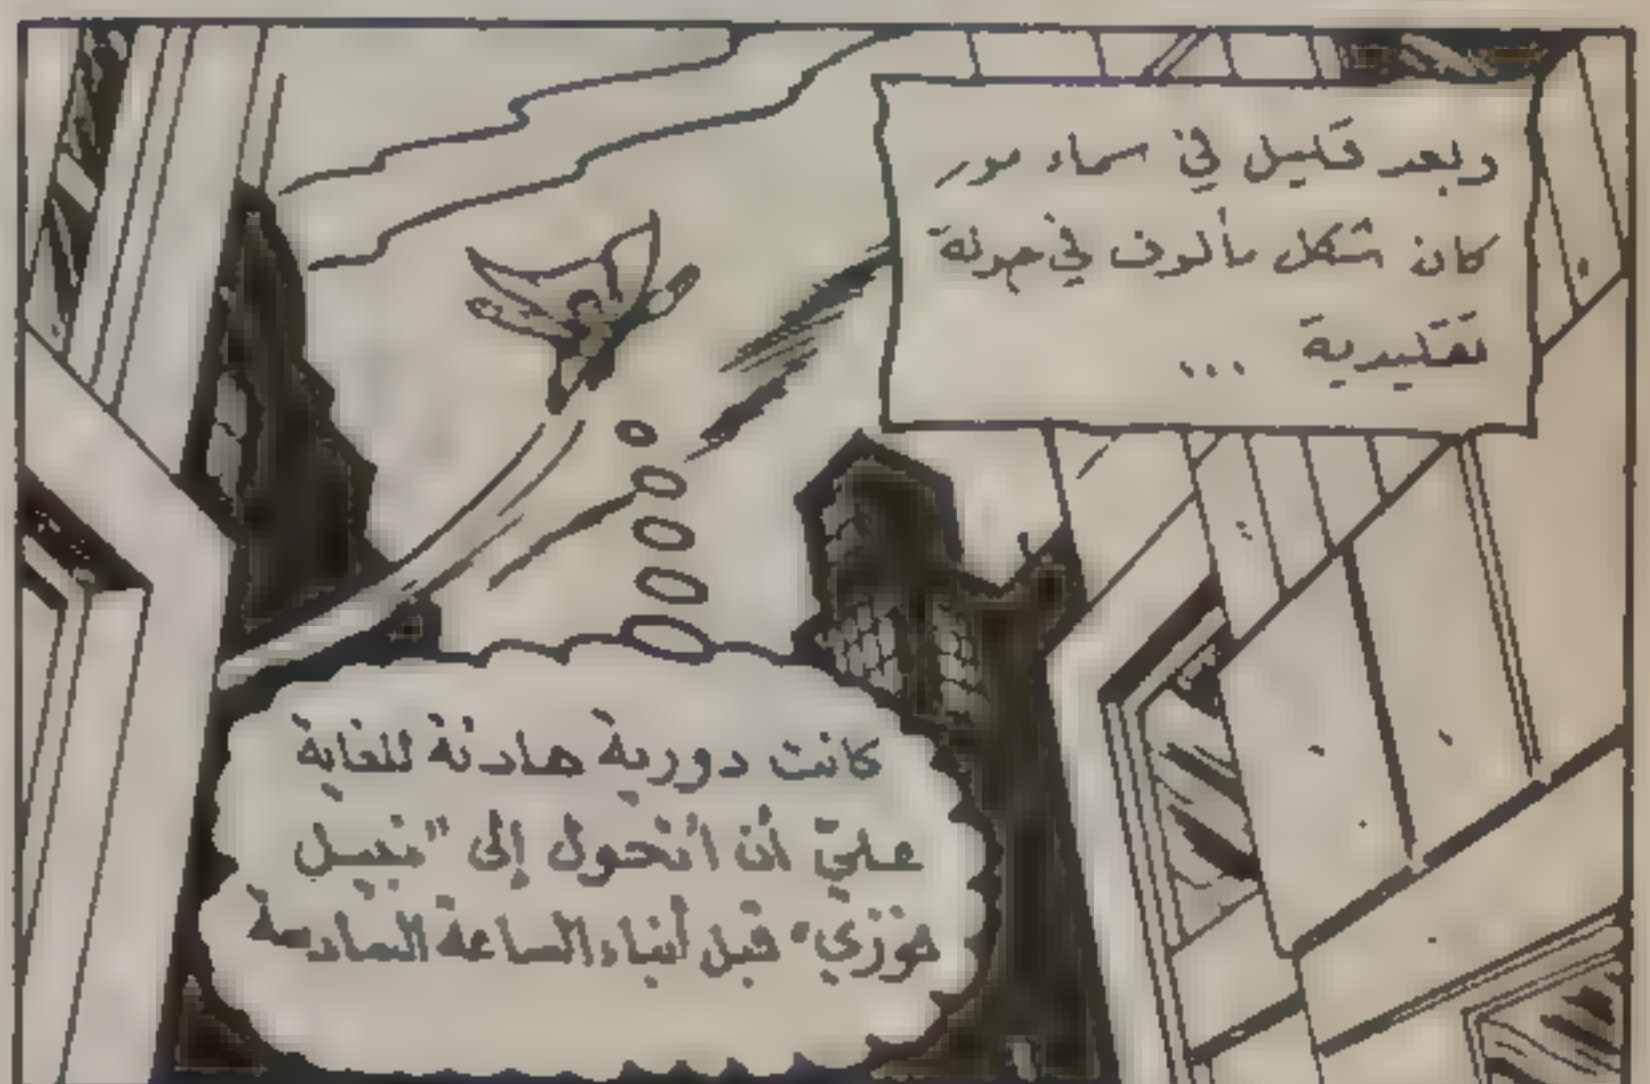 وبعد قليل في سماء مور
كان شكل مألوف في جولة
تقليدية ...
كانت دورية هادئة للغاية
عليّ أن أتحول إلى "نبيل
فوزي" قبل أنباء الساعة السادسة